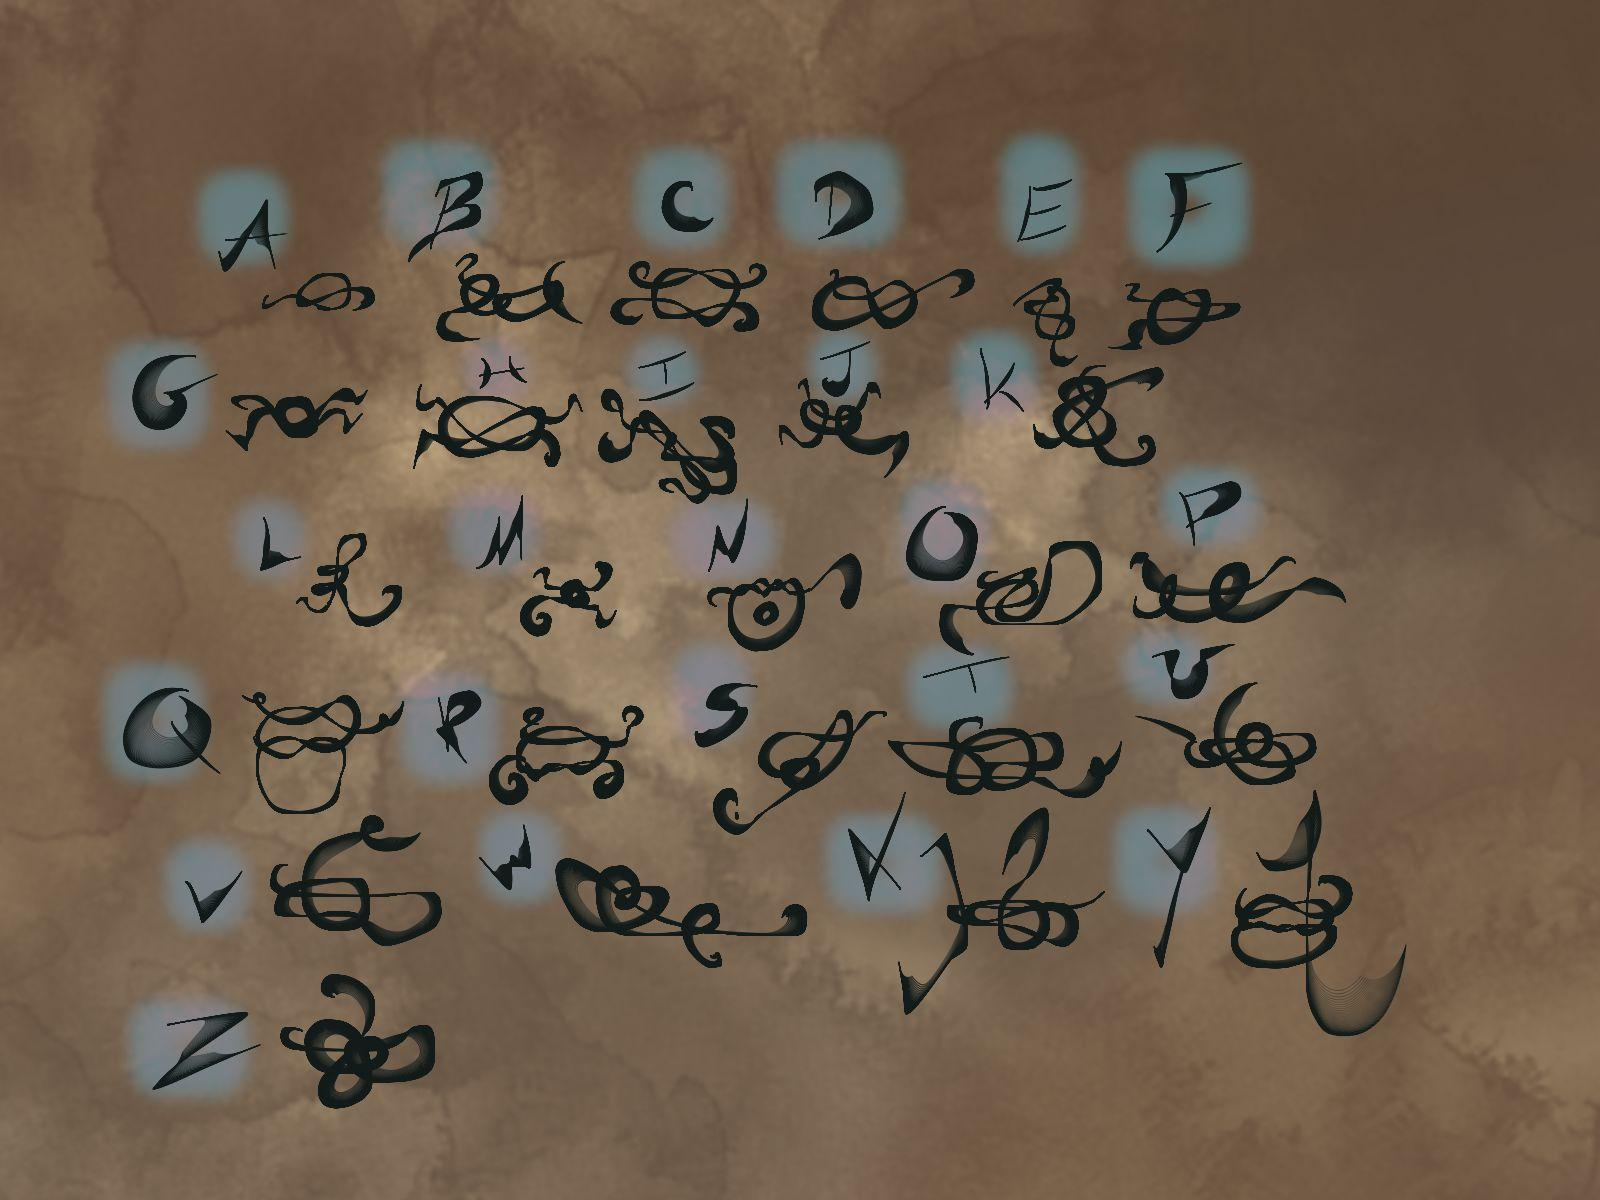 A B C D E F
G H I J K
L M N O P
Q R S T U
V W X Y
Z